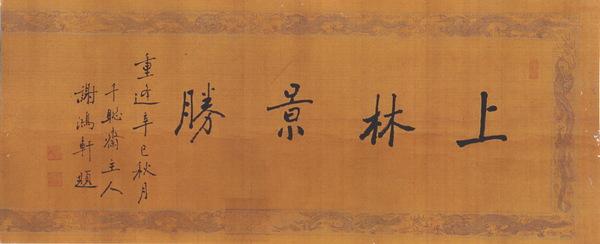 上林景勝
重逢辛巳秋月
千聯齋主人
謝鴻軒題